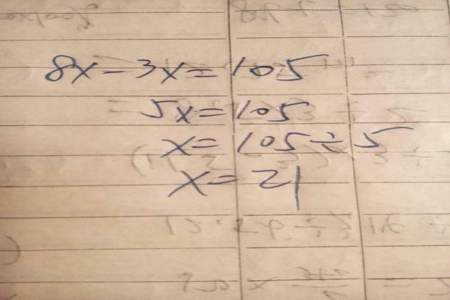 8x-3x=105
5x=105
x=105÷5
x=21